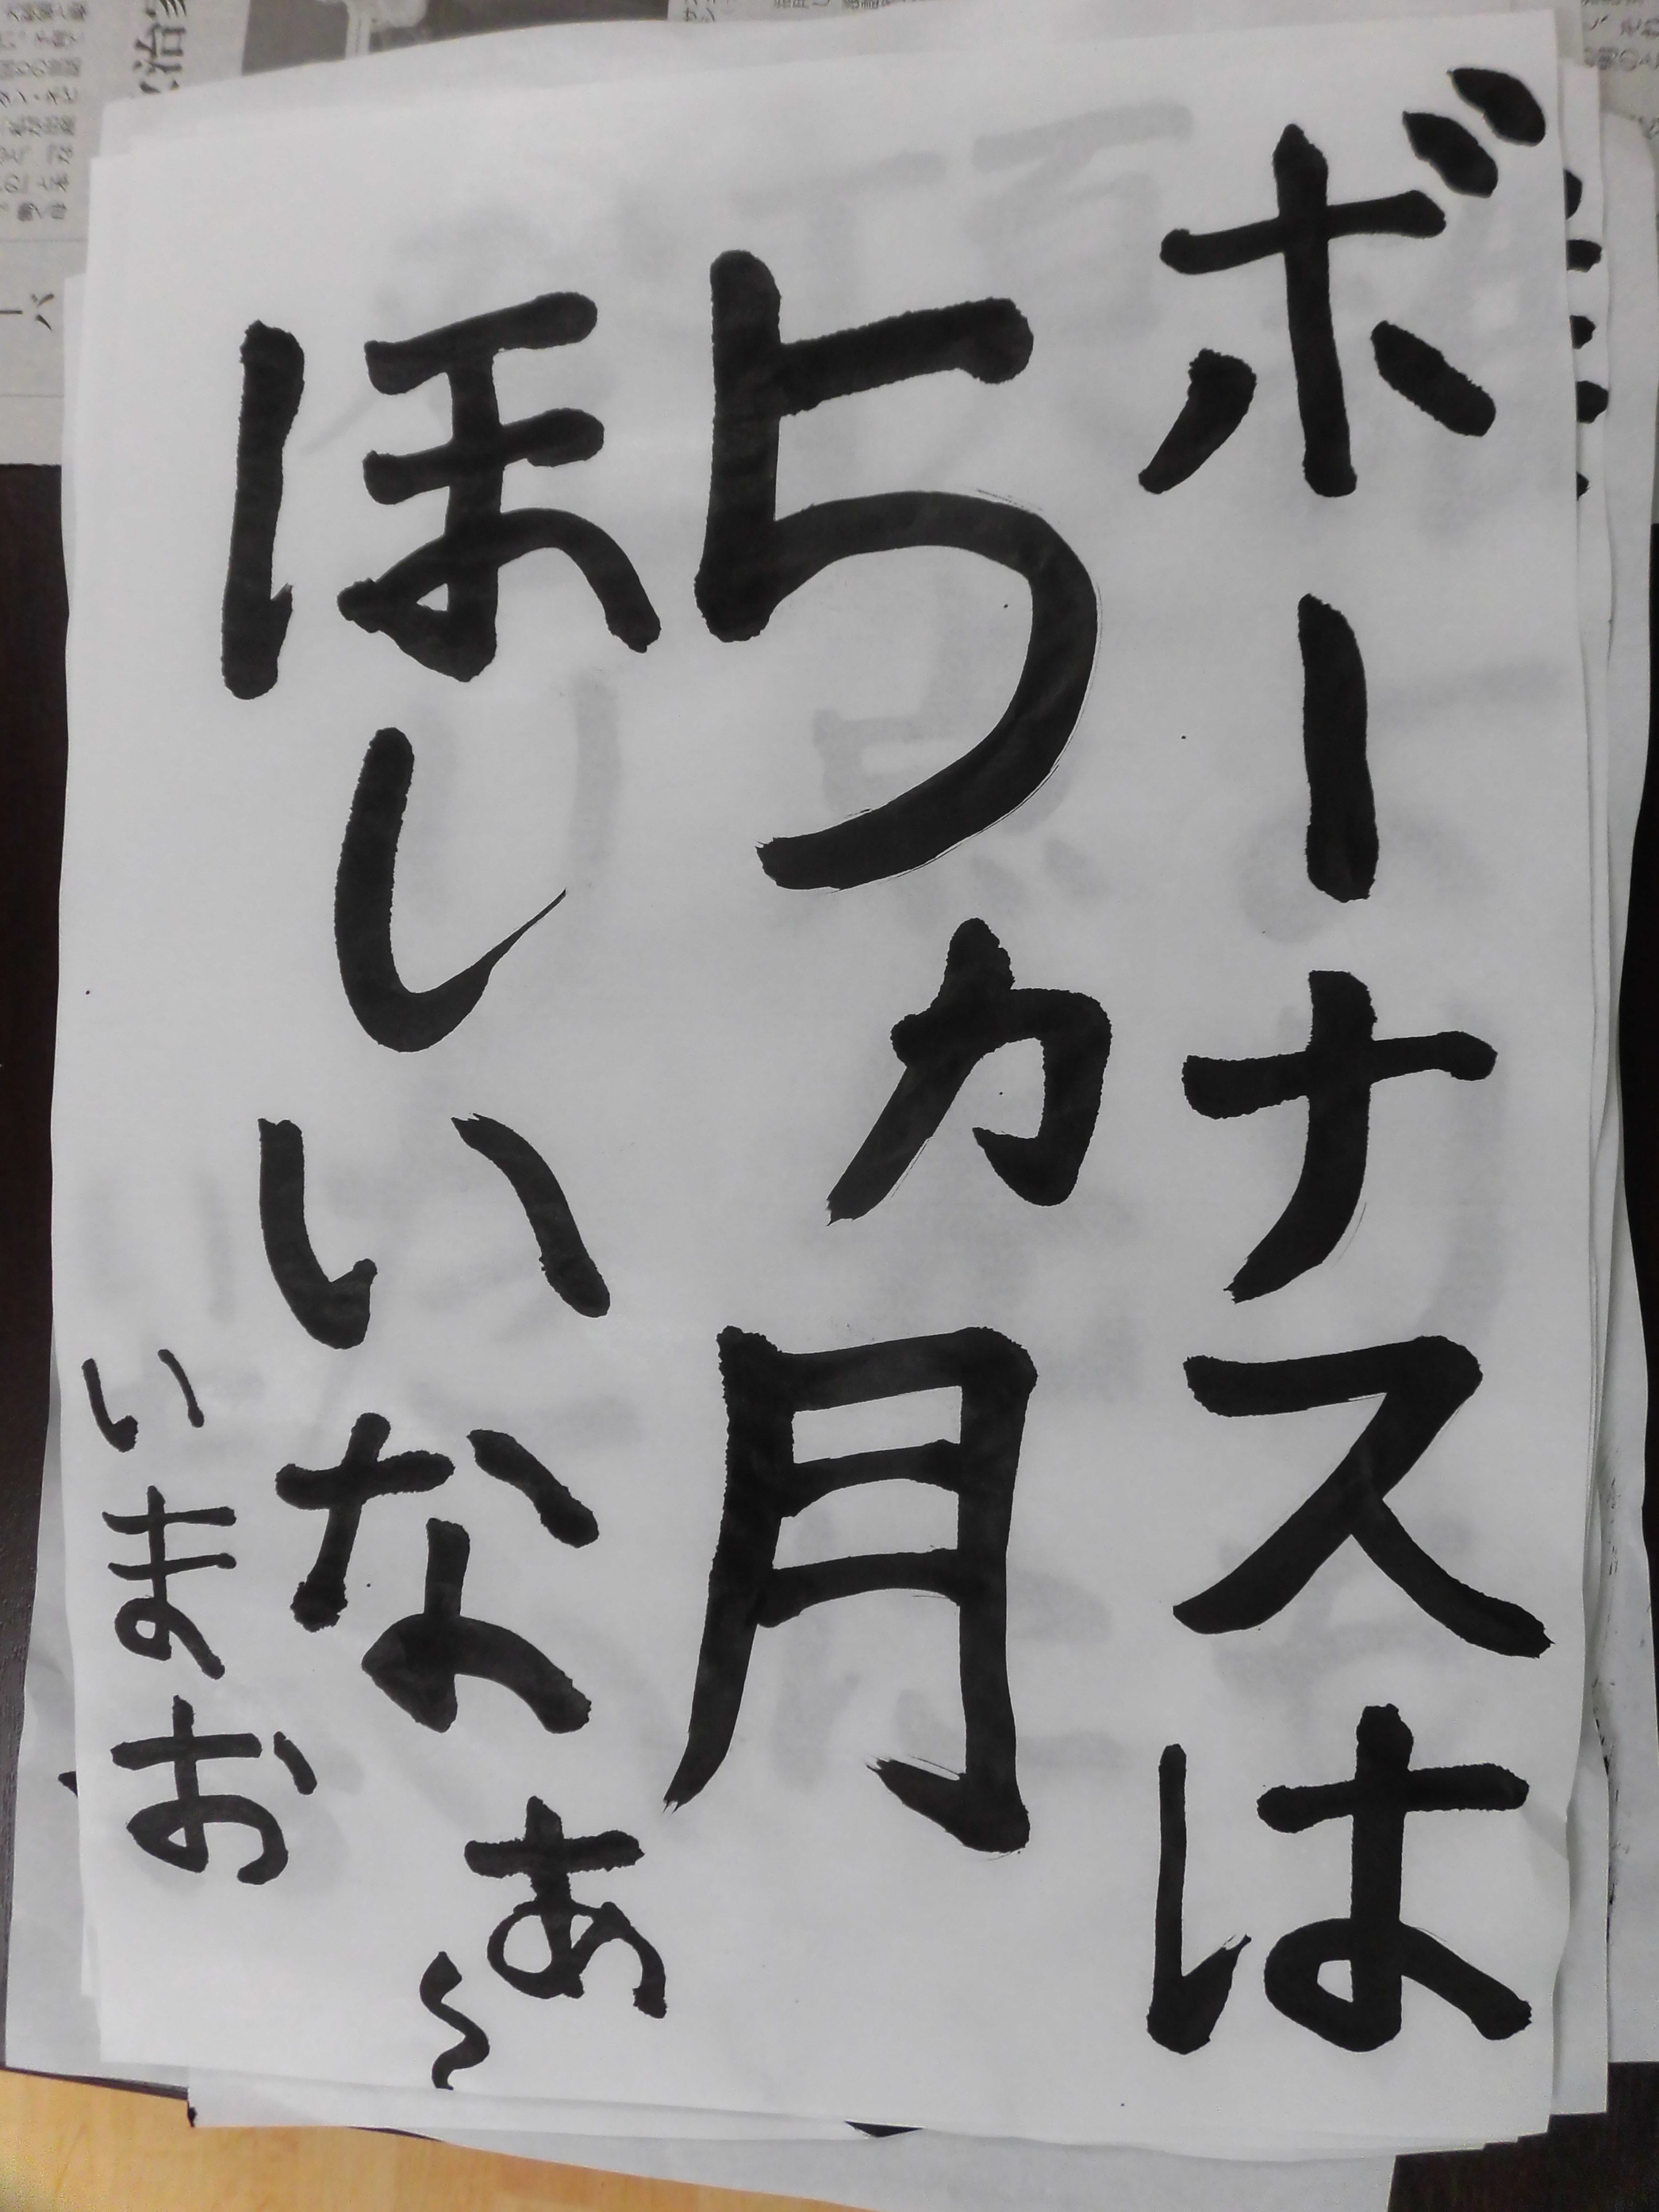 ボーナスは
5カ月
ほしいなあ〜
いまお